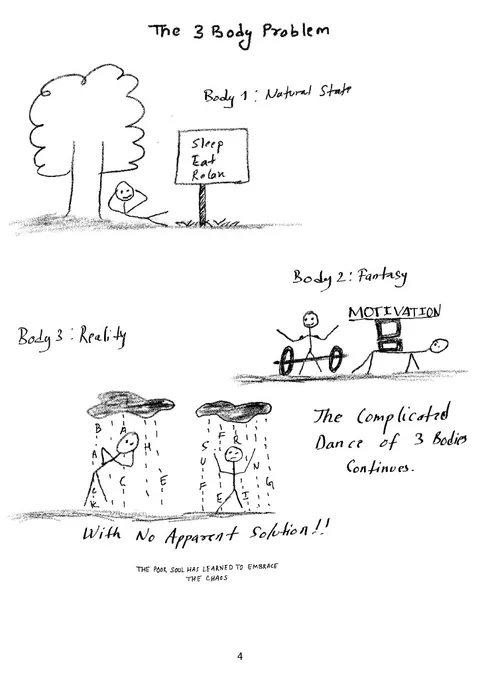 The 3 Body Problem
Body 1: Natural State
Sleep
Eat
Relax
Body 2: Fantasy
MOTIVATION
Body 3: Reality
BACK ACHE
SUFFERING
The Complicated
Dance of 3 Bodies
Continues.
With No Apparent Solution!!
THE POOR SOUL HAS LEARNED TO EMBRACE
THE CHAOS
4